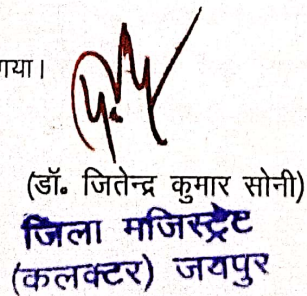 गया।
(डॉ. जितेन्द्र कुमार सोनी)
जिला मजिस्ट्रेट
(कलक्टर) जयपुर